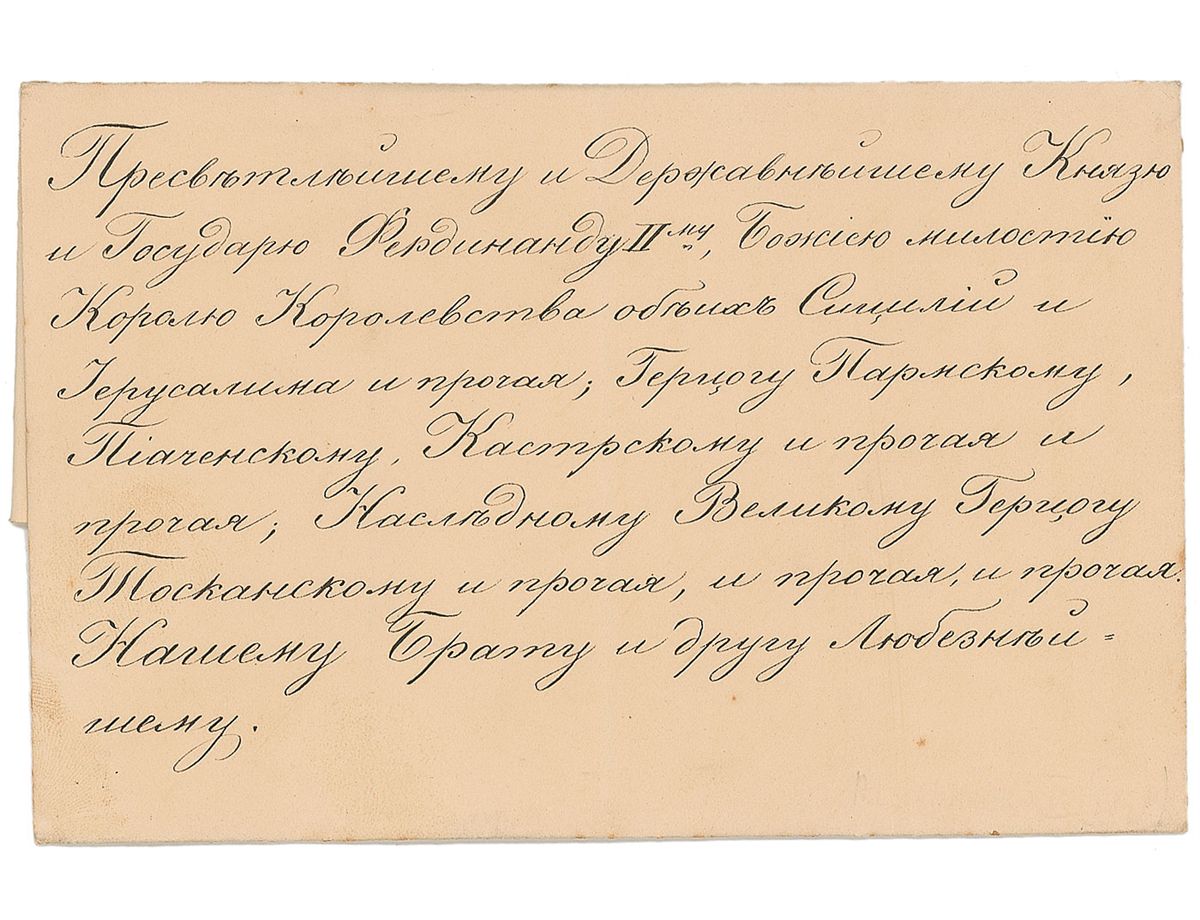 Пресвѣтлѣйшему и Державнѣйшему Князю
и Государю Фердинанду IIму, Божіею милостію
Королю Королевства обѣихъ Сицилій и
Іерусалима и прочая; Герцогу Пармскому,
Піаченскому, Кастрскому и прочая и
прочая; Наслѣдному Великому Герцогу
Тосканскому и прочая, и прочая, и прочая.
Нашему Брату и другу Любезнѣй=
шему.